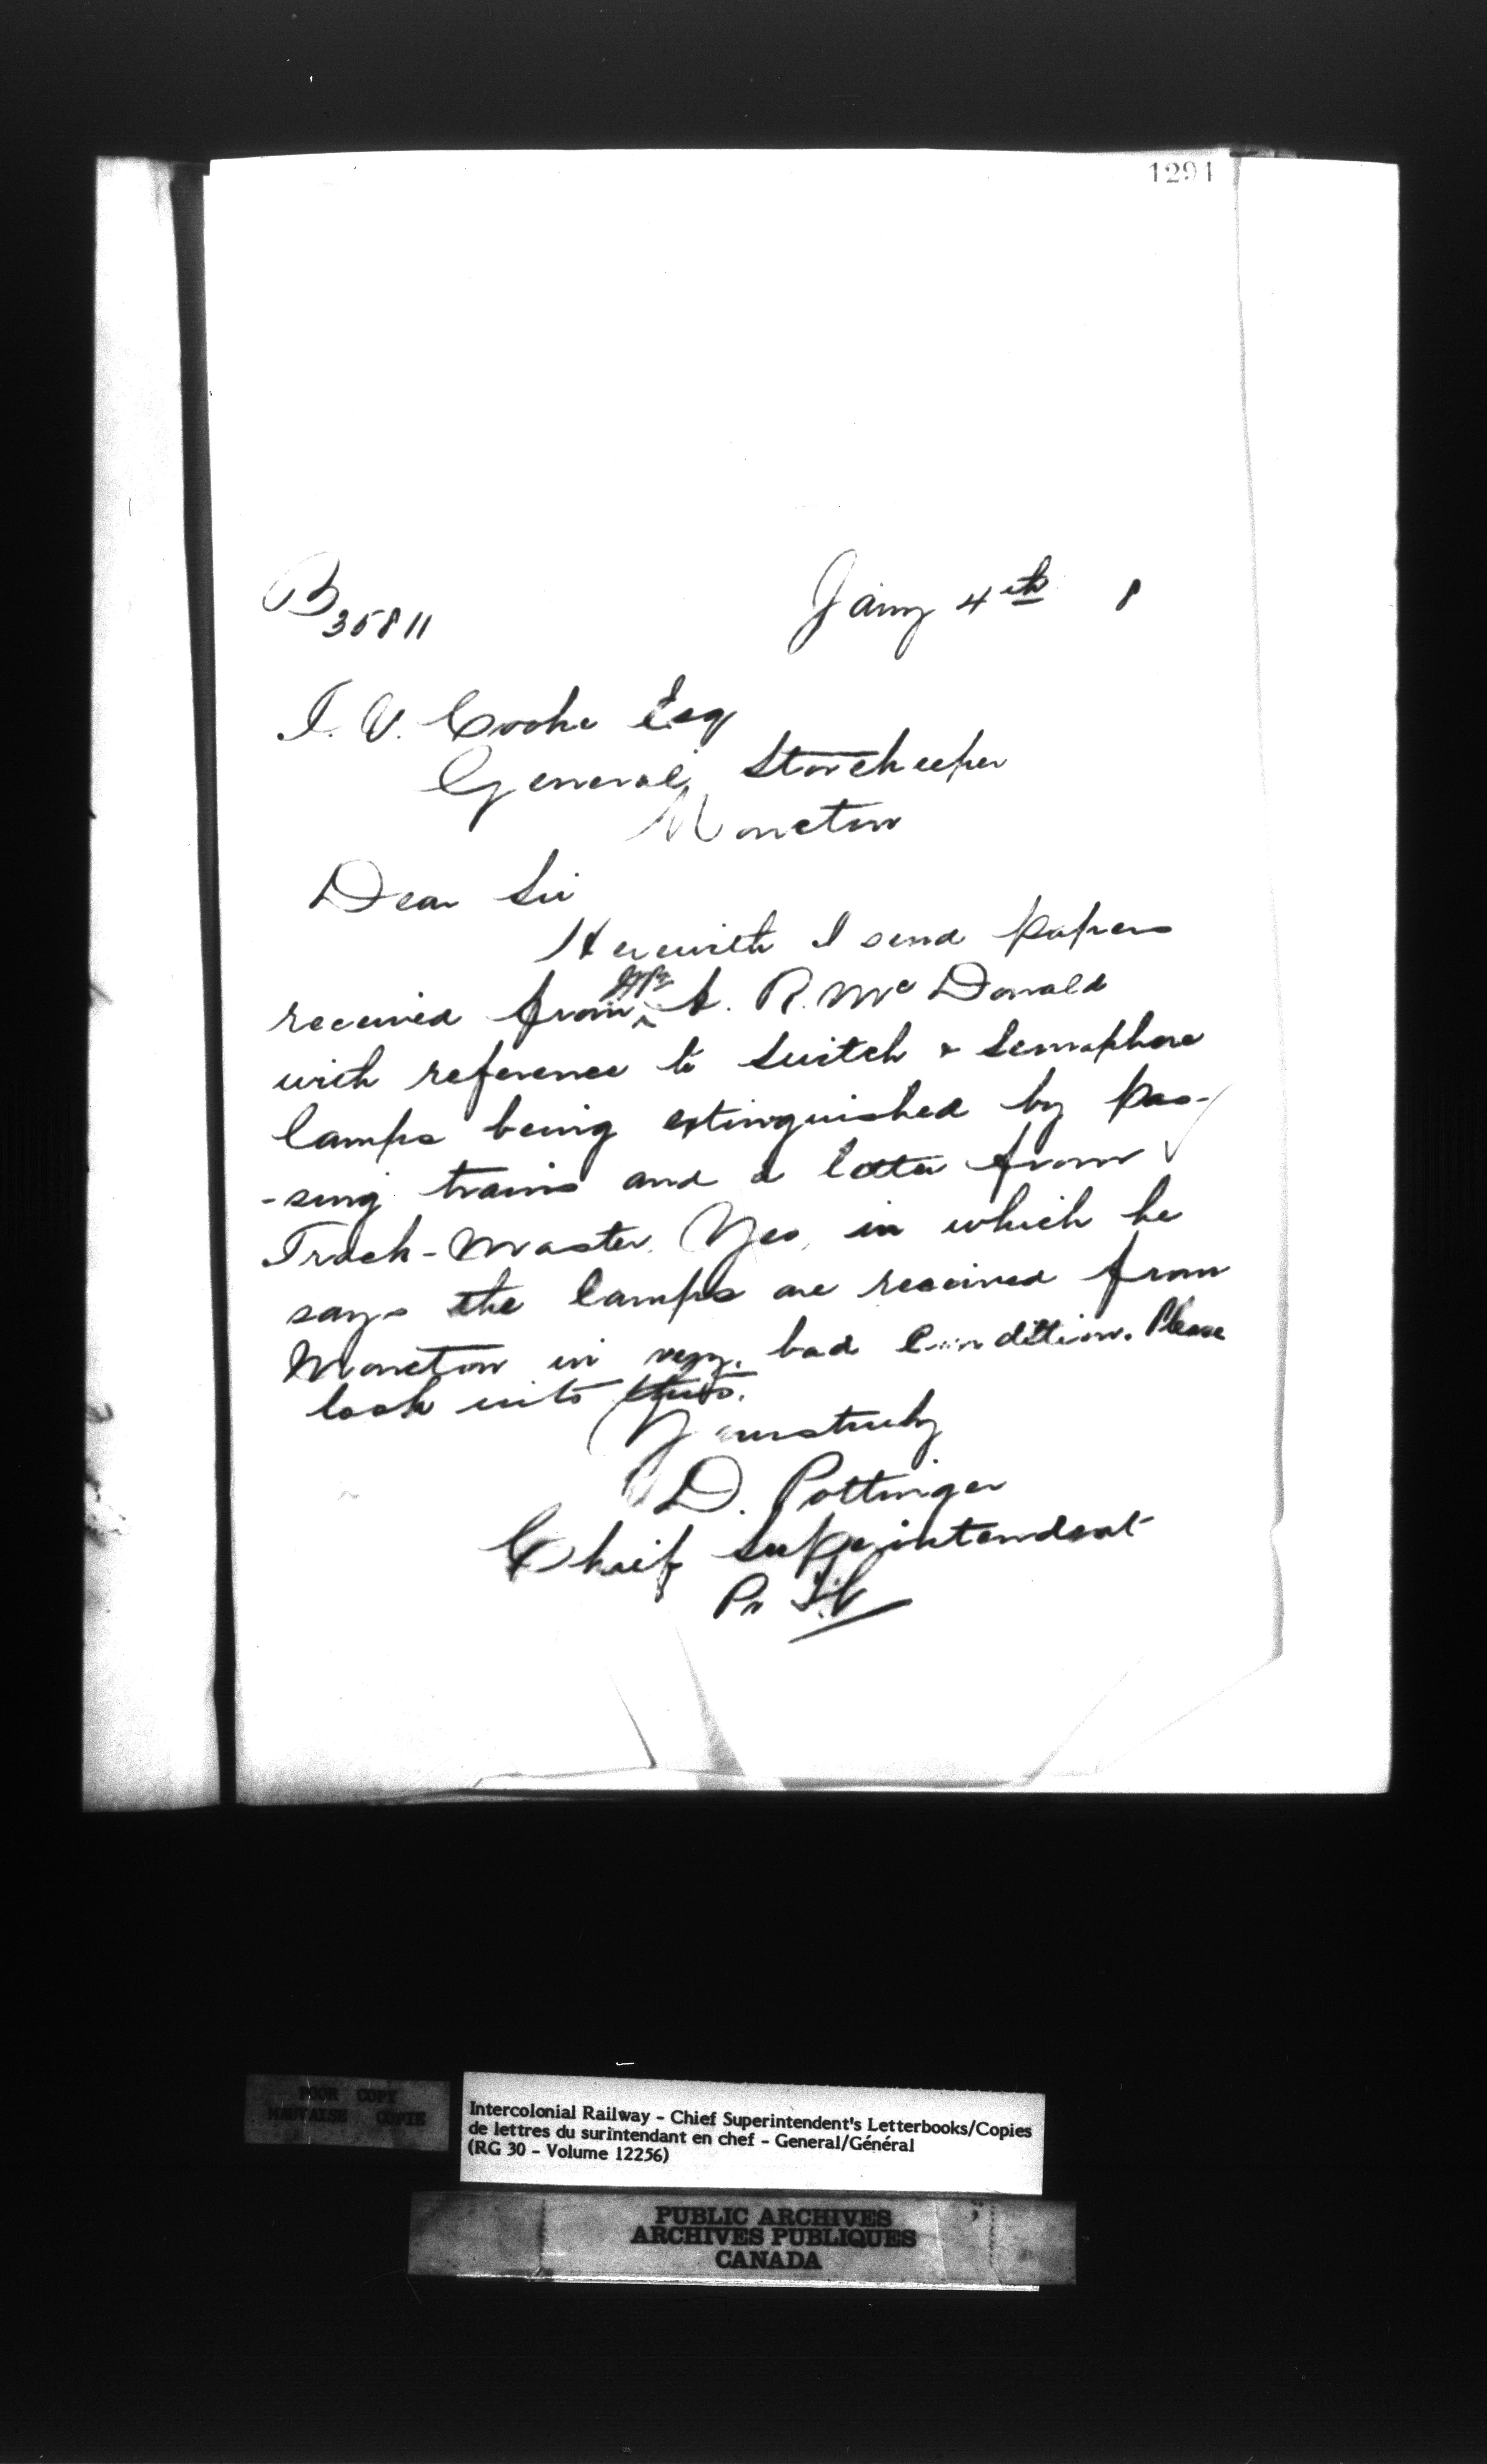 1291
B 35811
Jany 4th 8
T. V. Cooke Esq
General Storekeeper
Moncton
Dear Sir
Herewith I send papers
received from Mr A. R. McDonald
with reference to Switch & Semaphore
lamps being extinguished by pas-
-sing trains and a letter from
Track-Master Yeo, in which he
says the lamps are received from
Moncton in very bad Condition. Please
look into this.
Yours truly
D. Pottinger
Chief Superintendent
Pr
POOR COPY
MAUVAISE COPIE
Intercolonial Railway - Chief Superintendent's Letterbooks/Copies
de lettres du surintendant en chef - General/Général
(RG 30 - Volume 12256)
PUBLIC ARCHIVES
ARCHIVES PUBLIQUES
CANADA